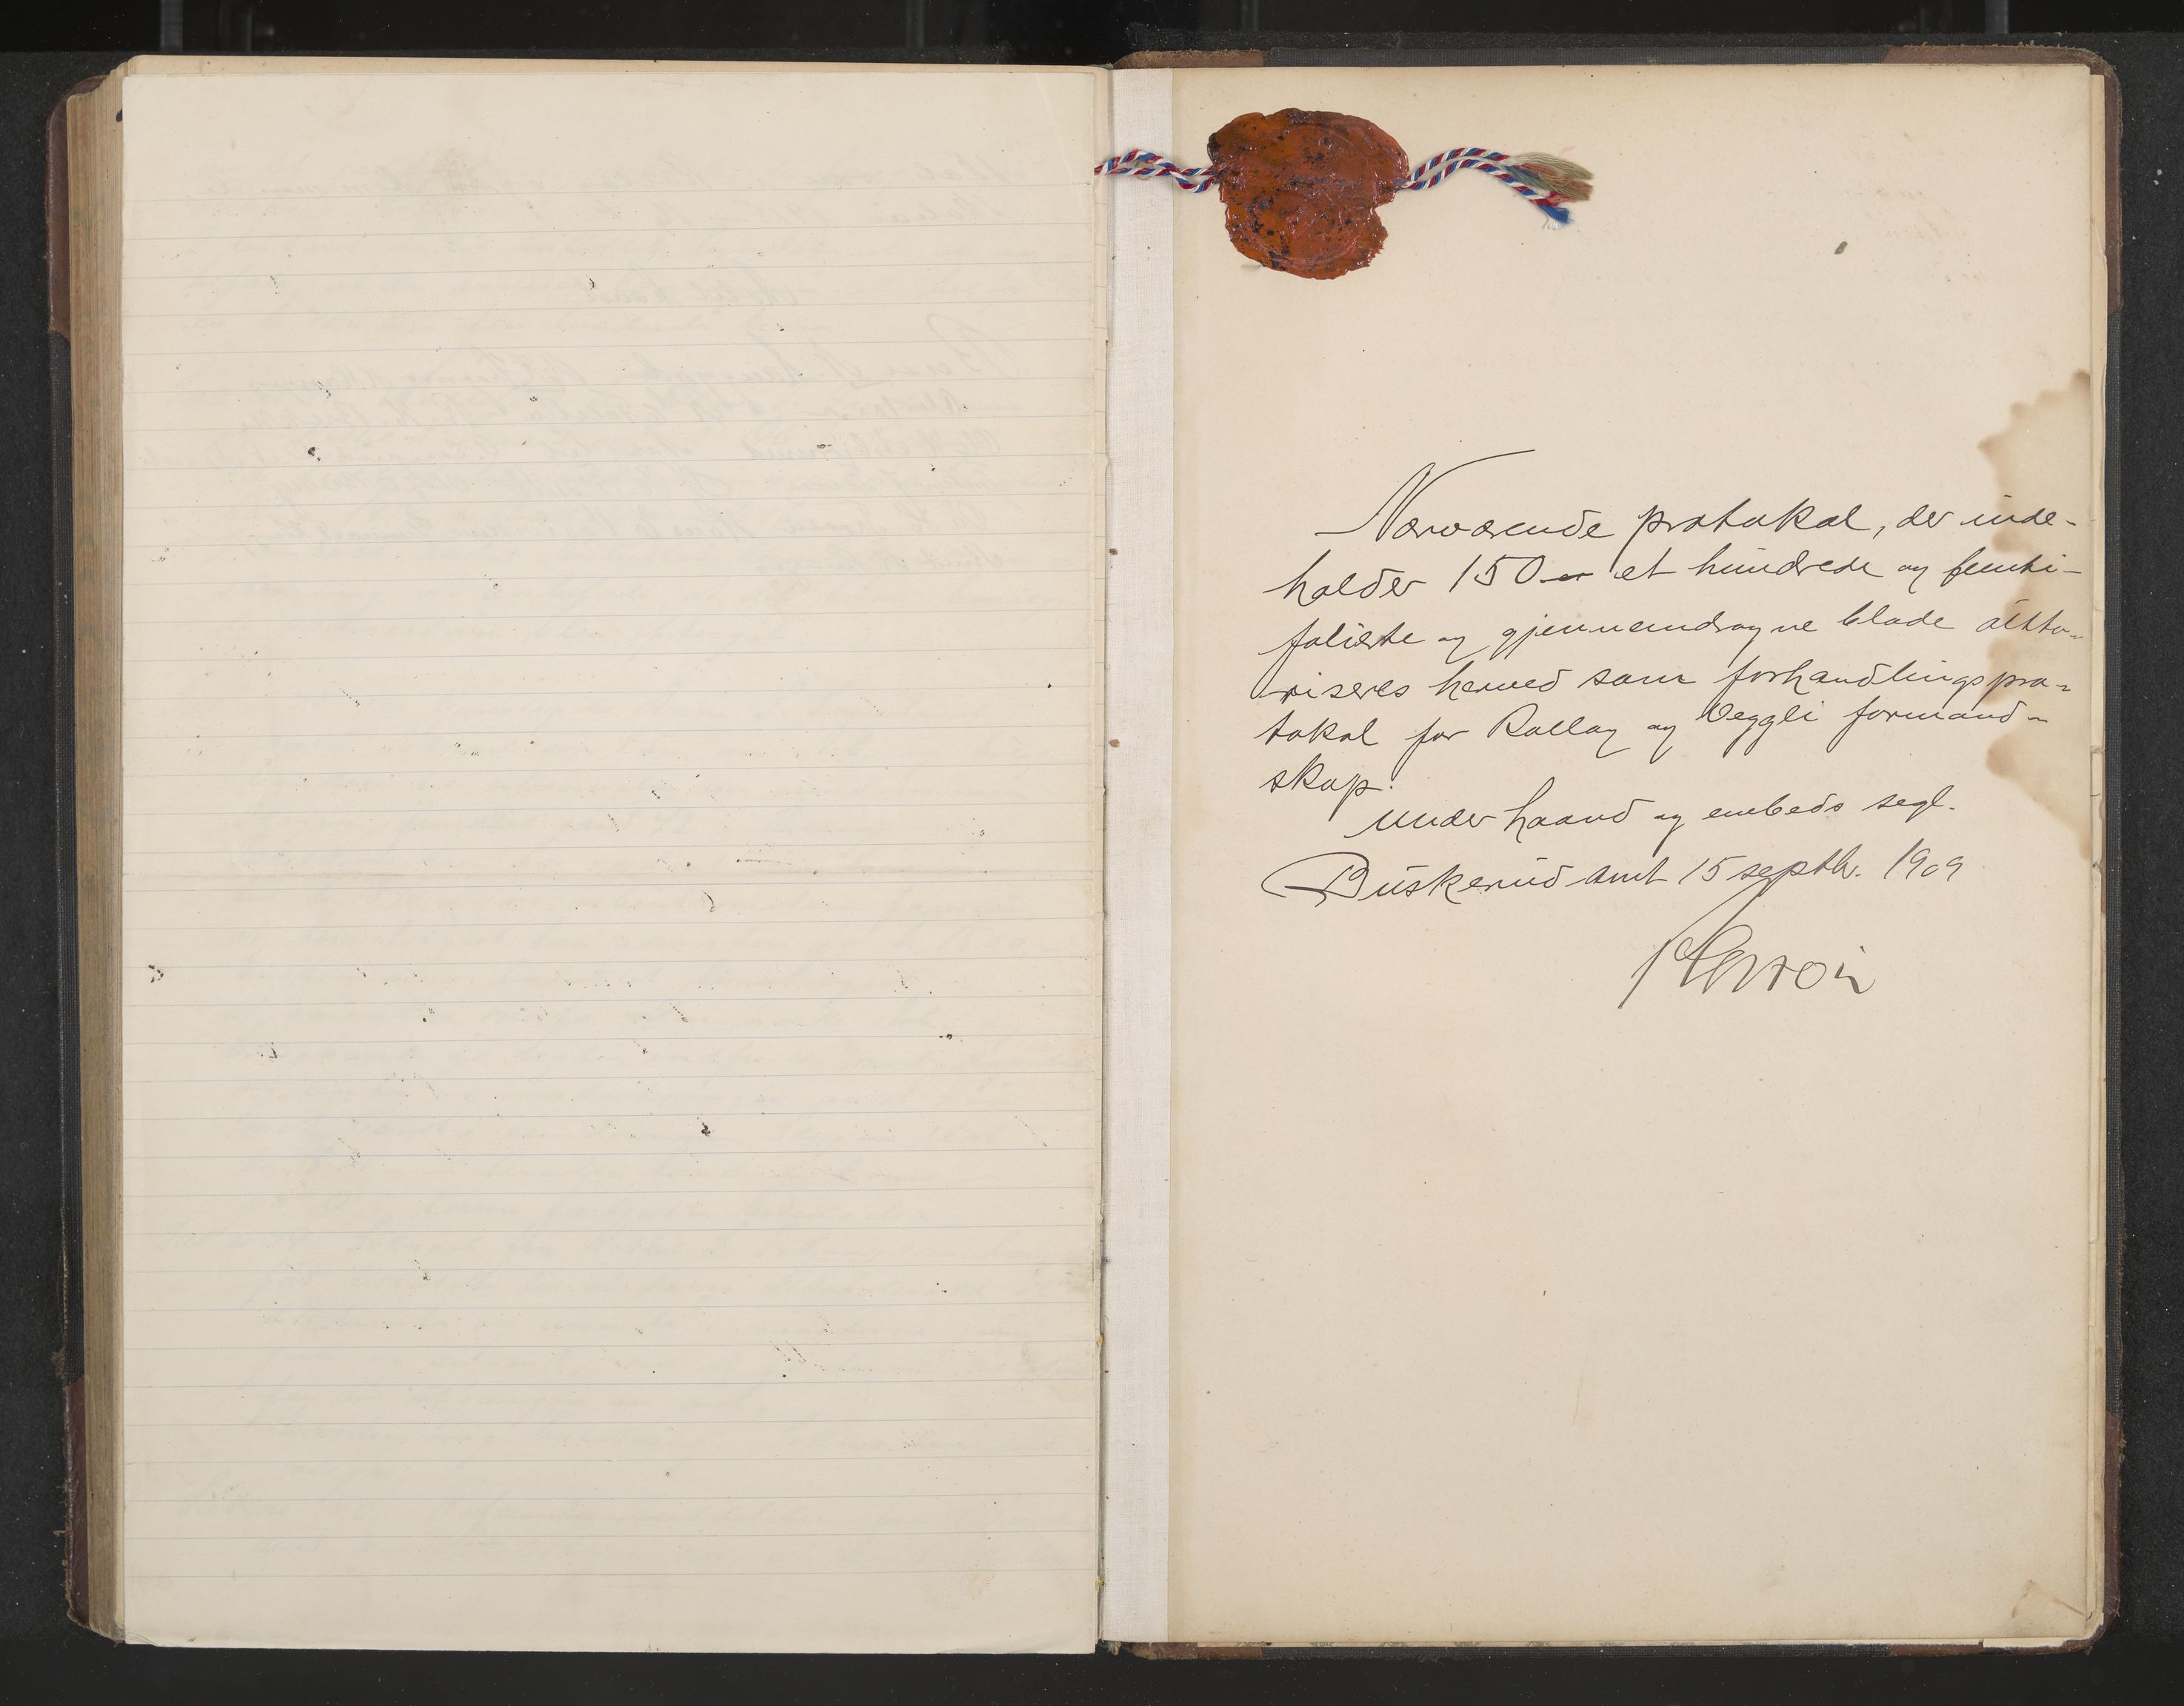 Nærværende protokol, der inde-
holder 150 - et hundrede og femti -
folierte og gjennemdragne blade autto-
riseres herved som forhandlingspro-
tokol for Rollag og Veggli formand-
skap.
Under haand og embeds segl.
Buskerud amt 15 septbr. 1909